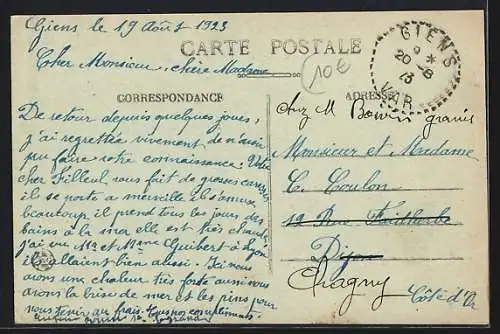 Giens le 19 Août 1923
CARTE POSTALE
10€
GIENS
9 *
20 -8
23
VAR
Cher Monsieur, chère Madame
CORRESPONDANCE
ADRESSE
De retour depuis quelques jours,
j'ai regrettée vivement de n'avoir
pu faire votre connaissance. Votre
cher Filleul vous fait de grosses caresses
il se porte a merveille il s'amuse
beaucoup il prend tous les jours des
bains à la mer elle est très chaude
j'ai vu Mr et Mme Guibert à Lyon
ils allaient bien aussi. Ici nous
avons une chaleur très forte aussi nous
avons la brise de mer et les pins pour
nous tenir au frais.
chez M
Monsieur et Madame
C. Coulon
12 Rue Faidherbe
Dijon
Chagny
Côte d'Or